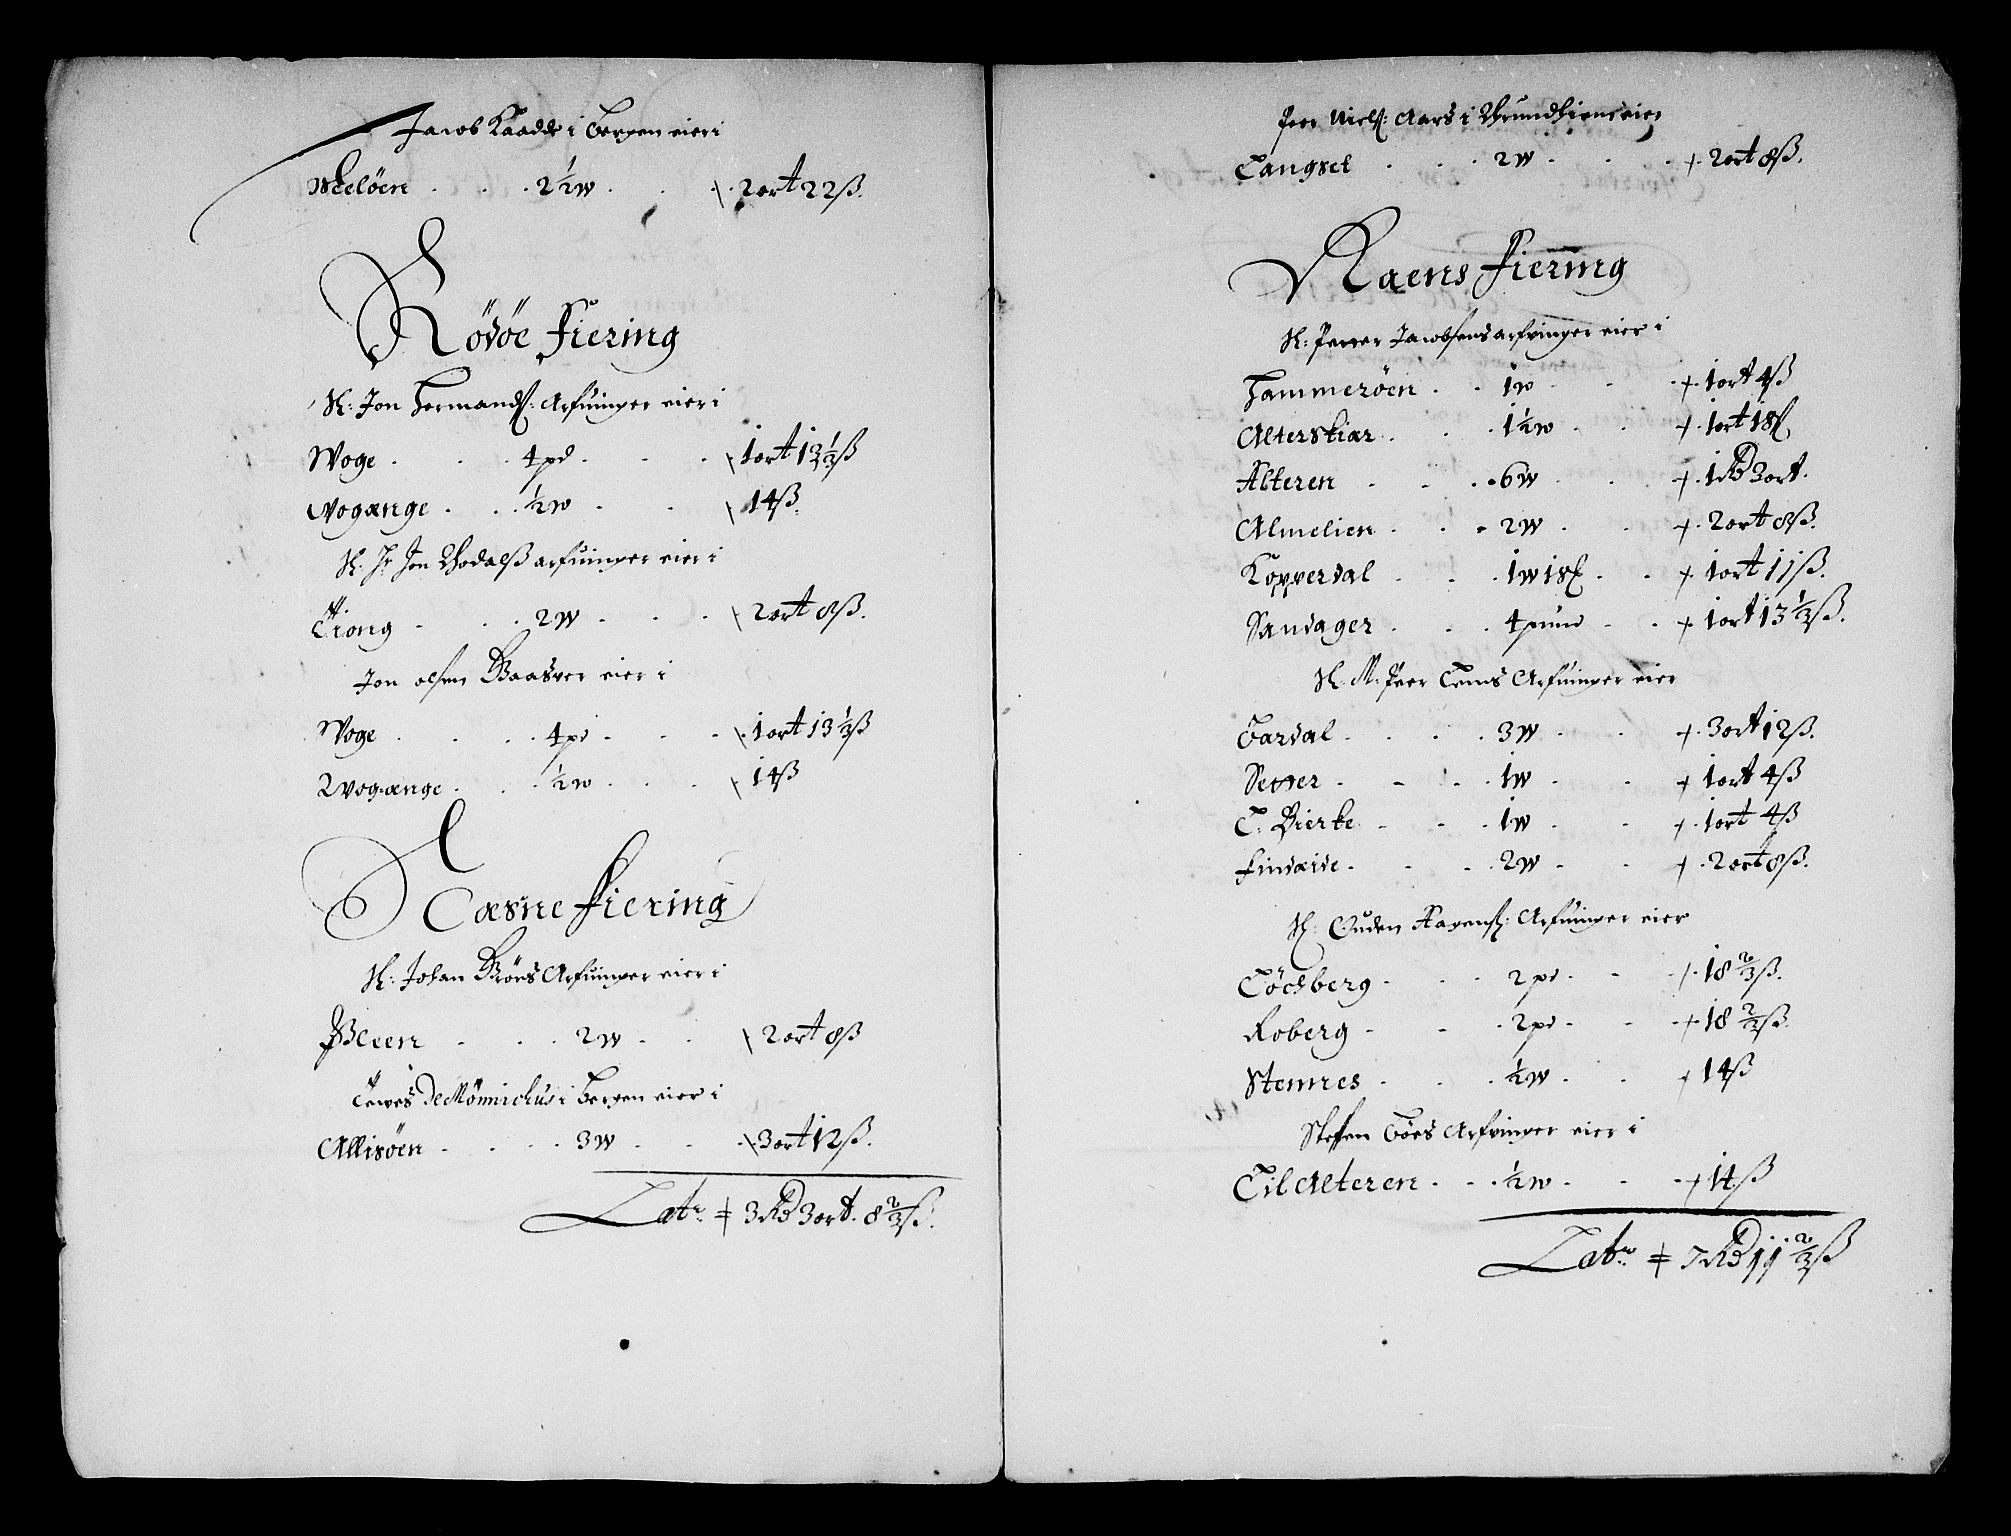 Jacob Kaadde i Bergen eier i
Meløen . . . . 2½w . . . 2ort 22ß.
Rödöe Fiering
Sl: Jon Hermandß: Arfuinger eier i
Woge . . . 4pd . . . 1ort 13⅓ß
Wogænge . . . ½w . . . 14ß.
Sl: Hr Jon Thodalß arfuinger eier i
Tiong . . . 2w . . . 2ort 8ß.
Jon olsen Baasver eier i
Woge . . . . 4pd . . . 1ort 13⅓ß
Wogænge . . . ½w . . . 14ß
Næsne Fiering
Sl: Johan Bröns Arfuinger eier i
Bleen . . . 2w . . 2ort 8ß
Tewes De Mönnichus i Bergen eier i
Allisöen . . . 3w . . . 3ort 12ß.
Late: 3 RD 3ort. 8⅔ß.
Peer Nielß: Aars i Thrundhiem eier
Langset . . . 2w . . . 2ort 8ß.
Raens Fierinng
Sl: Petter Jacobsens arfvinger eier i
Hammerøen . . 1w . . . 1ort 4ß
Alterskiær . . . 1½w . . . 1ort 18ß
Alteren . . . 6w . . . 1RD 3ort.
Almelien . . . 2w . . . 2ort 8ß.
Kopperdal . . . 1w 18 . . . 1ort 11ß.
Sandager . . . 4pund . . 1ort 13⅓ß.
Sl: M: Peer Arfuinger eier
Bardal . . . . 3w . . . 3ort 12ß.
Setter . . . 1w . . . 1ort 4ß
L: Bierke . . . 1w . . . 1ort 4ß
Findæide . . . 2w . . . 2ort 8ß.
Sl: Ouden Hagenß: Arfuinger eier
. . . 2pd . . . 18⅔ß.
Roberg . . . 2pd . . . 18⅔ß.
Stemres . . . ½w . . . 14ß
Steffen Böes Arfvinger eier i
Lil Alteren . . . ½w . . . 14ß
Late: 7 RD 11⅔ß